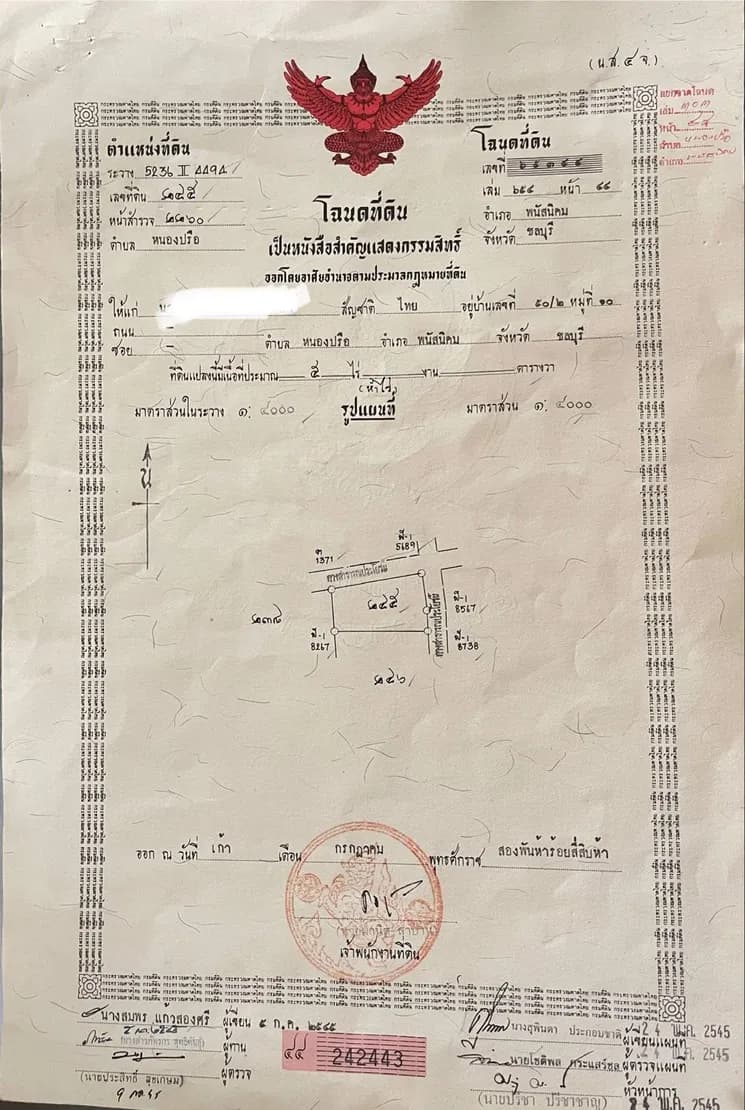 (น.ส.๔ จ.)
ตำแหน่งที่ดิน
ระวาง 5236 II 4494
เลขที่ดิน ๒๔๕
หน้าสำรวจ
ตำบล หนองปรือ
โฉนดที่ดิน
เลขที่
เล่ม ๖๕๔ หน้า ๔๔
อำเภอ พนัสนิคม
จังหวัด ชลบุรี
โฉนดที่ดิน
เป็นหนังสือสำคัญแสดงกรรมสิทธิ์
ออกโดยอาศัยอำนาจตามประมวลกฎหมายที่ดิน
ให้แก่ สัญชาติ ไทย อยู่บ้านเลขที่ ๕๐/๒ หมู่ที่ ๑๐
ถนน –
ซอย – ตำบล หนองปรือ อำเภอ พนัสนิคม จังหวัด ชลบุรี
ที่ดินแปลงนี้มีเนื้อที่ประมาณ ๕ ไร่ งาน ตารางวา
(ห้าไร่)
มาตราส่วนในระวาง ๑: ๔๐๐๐ รูปแผนที่ มาตราส่วน ๑: ๔๐๐๐
น
1371
5689
ทางสาธารณประโยชน์
๒๔๕
8567
ทางสาธารณประโยชน์
8267
8738
๒๔๖
ออก ณ วันที่ เก้า เดือน กรกฎาคม พุทธศักราช สองพันห้าร้อยสี่สิบห้า
เจ้าพนักงานที่ดิน
นางสมพร แก้วสองศรี ผู้เขียน ๕ ก.ค. ๒๕๔๕
ผู้ทาน
ผู้ตรวจ
(นายประสิทธิ์ สุขเกษม)
๔๔ 242443
นางสุพินดา ประกอบชาติ 24 พ.ค. 2545
ผู้เขียนแผนที่
นายโชติพล 24 พ.ค. 2545
ผู้ตรวจแผนที่
(นายปรีชา ปรีชาชาญ) หัวหน้าการ
24 พ.ค. 2545